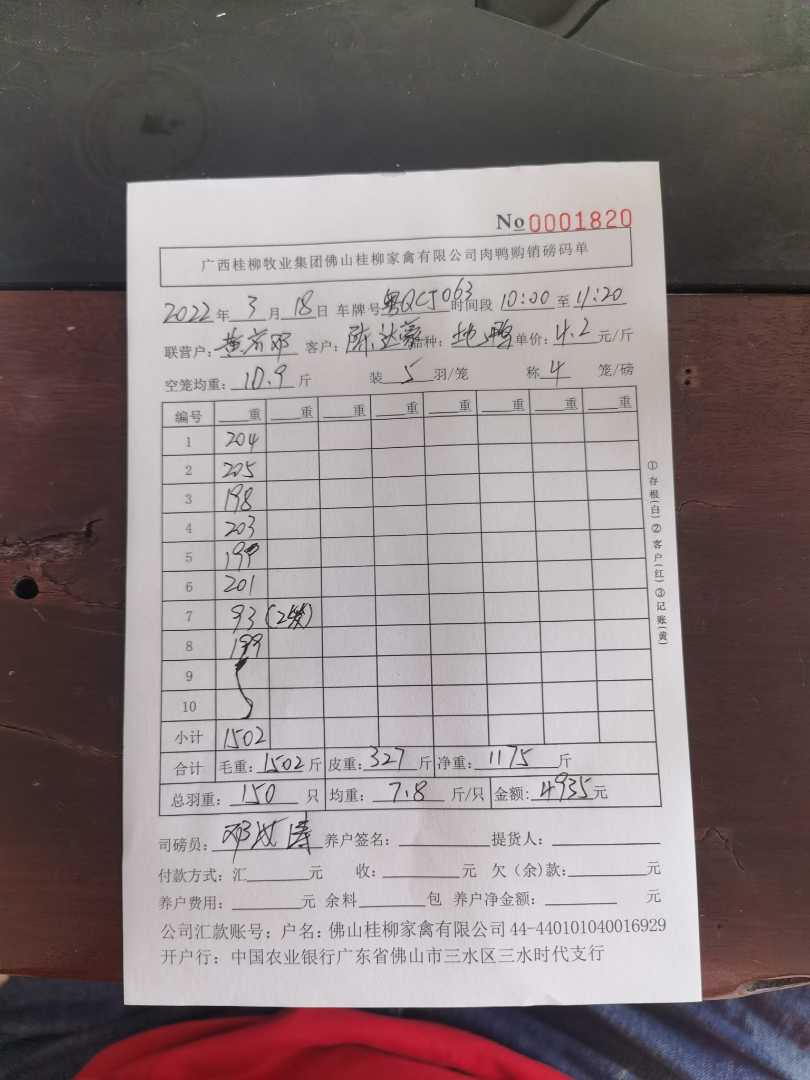 No 0001820
广西桂柳牧业集团佛山桂柳家禽有限公司肉鸭购销磅码单
2022年 3月 18日 车牌号 粤QCJ063 时间段 10:00 至 11:20
联营户: 客户: 陈 品种: 鸭 单价: 4.2 元/斤
空笼均重: 10.9 斤 装 5 羽/笼 称 4 笼/磅
编号 重 重 重 重 重 重 重 重
1 204
2 205
3 198
4 203
5 199
6 201
7 93 (2笼)
8 199
9
10
小计 1502
合计 毛重: 1502 斤 皮重: 327 斤 净重: 1175 斤
总羽重: 150 只 均重: 7.8 斤/只 金额: 4935元
司磅员: 邓 养户签名: 提货人:
付款方式: 汇 元 收: 元 欠(余)款: 元
养户费用: 元 余料 包 养户净金额: 元
公司汇款账号; 户名: 佛山桂柳家禽有限公司 44-440101040016929
开户行: 中国农业银行广东省佛山市三水区三水时代支行
①存根(白)②客户(红)③记账(黄)